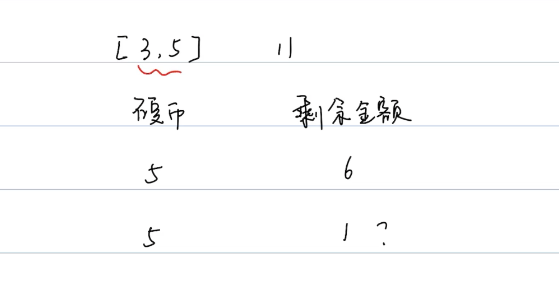 [3,5] 11
硬币 剩余金额
5 6
5 1 ?